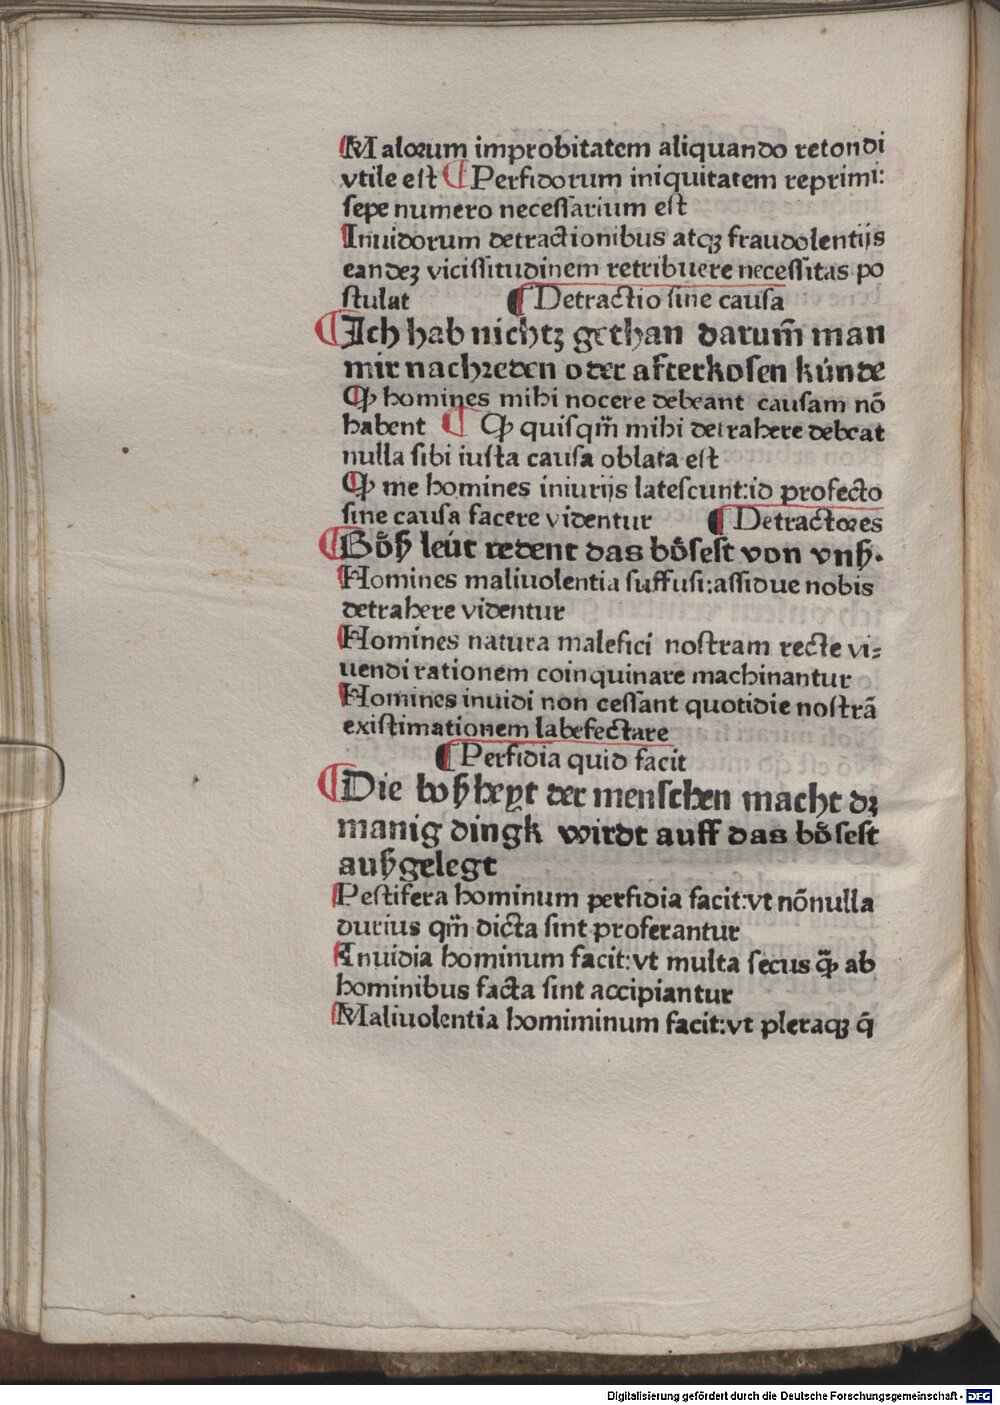 Malorum improbitatem aliquando retondi
vtile est ¶ Perfidorum iniquitatem reprimi:
sepe numero necessarium est
Inuidorum detractionibus atqꝫ fraudolentijs
eandeꝫ vicissitudinem retribuere necessitas po
stulat ¶ Detractio sine causa
¶ Ich hab nichtꝫ gethan darum̄ man
mir nachreden oder afterkosen künde
Ꝙ homines mihi nocere debeant causam nō
habent ¶ Ꝙ quisqm̄ mihi detrahere debeat
nulla sibi iusta causa oblata est
Ꝙ me homines iniurijs latescunt:id profecto
sine causa facere videntur ¶ Detractores
¶ Boͤß leút redent das boͤsest von vnß.
Homines maliuolentia suffusi:assidue nobis
detrahere videntur
Homines natura malefici nostram recte vi⸗
uendi rationem coinquinare machinantur
Homines inuidi non cessant quotidie nostrā
existimationem labefectare
¶ Perfidia quid facit
¶ Die boßheyt der menschen macht dꝫ
manig dingk wirdt auff das boͤsest
außgelegt
Pestifera hominum perfidia facit:vt nōnulla
durius qm̄ dicta sint proferantur
Inuidia hominum facit:vt multa secus qꝫ̄ ab
hominibus facta sint accipiantur
Maliuolentia homiminum facit:vt pleraqꝫ q̄
Digitalisierung gefördert durch die Deutsche Forschungsgemeinschaft - DFG